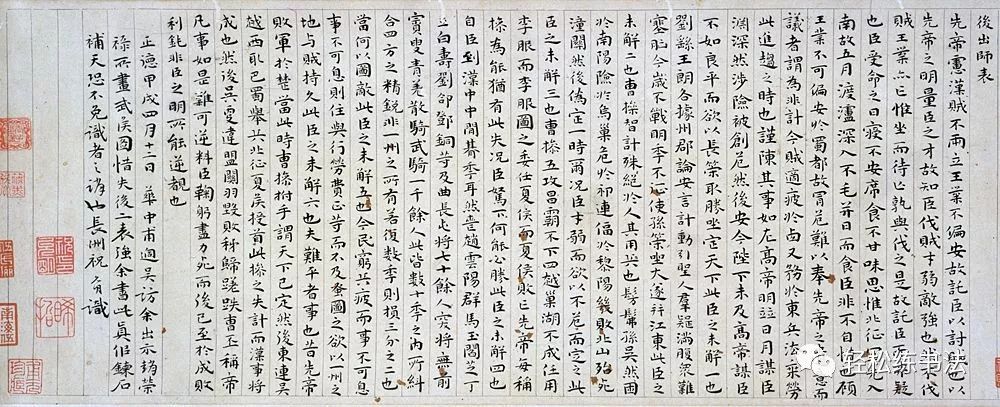 後出師表
先帝慮漢賊不兩立王業不偏安故託臣以討賊也以
先帝之明量臣之才故知臣伐賊才弱敵強也然不伐
賊王業亦亡惟坐而待亡孰與伐之是故託臣而弗疑
也臣受命之日寢不安席食不甘味思惟北征宜先入
南故五月渡瀘深入不毛并日而食臣非不自惜也顧
王業不可偏安於蜀都故冒危難以奉先帝之遺意而
議者謂為非計今賊適疲於西又務於東兵法乘勞
此進趨之時也謹陳其事如左高帝明並日月謀臣
淵深然涉險被創危然後安今陛下未及高帝謀臣
不如良平而欲以長策取勝坐定天下此臣之未解一也
劉繇王朗各據州郡論安言計動引聖人羣疑滿腹衆難
塞胸今歲不戰明年不征使孫策坐大遂并江東此臣之
未解二也曹操智計殊絕於人其用兵也髣髴孫吳然困
於南陽險於烏巢危於祁連偪於黎陽幾敗北山殆死
潼關然後偽定一時爾況臣才弱而欲以不危而定之此
臣之未解三也曹操五攻昌霸不下四越巢湖不成任用
李服而李服圖之委任夏侯而夏侯敗亡先帝每稱
操為能猶有此失況臣駑下何能必勝此臣之未解四也
自臣到漢中中間朞年耳然喪趙雲陽群馬玉閻芝丁
立白壽劉郃鄧銅等及曲長屯將七十餘人突將無前
賨叟青羌散騎武騎一千餘人此皆數十年之內所糾
合四方之精銳非一州之所有若復數年則損三分之二也
當何以圖敵此臣之未解五也今民窮兵疲而事不可息
事不可息則住與行勞費正等而不及蚤圖之欲以一州之
地与賊持久此臣之未解六也夫難平者事也昔先帝
敗軍於楚當此時曹操拊手謂天下已定然後東連吳
越西取巴蜀舉兵北征夏侯授首此操之失計而漢事將
成也然後吳更違盟關羽毀敗秭歸蹉跌曹丕稱帝
凡事如是難可逆料臣鞠躬盡力死而後已至於成敗
利鈍非臣之明所能逆覩也
正德甲戌四月十二日華中甫過吳訪余出示趙榮
祿所畫武侯圖惜失後二表強余書此真鍊石
補天恐不免識者之誚也長州祝允明識
轻松练书法